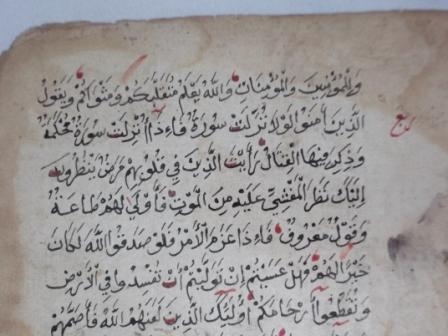 وَالْمُؤْمِنِينَ وَالْمُؤْمِنَاتِ وَاللَّهُ يَعْلَمُ مُتَقَلَّبَكُمْ وَمَثْوَاكُمْ وَيَقُولُ
الَّذِينَ آمَنُوا لَوْلَا نُزِّلَتْ سُورَةٌ فَإِذَا أُنْزِلَتْ سُورَةٌ مُحْكَمَةٌ
وَذُكِرَ فِيهَا الْقِتَالُ رَأَيْتَ الَّذِينَ فِي قُلُوبِهِمْ مَرَضٌ يَنْظُرُونَ
إِلَيْكَ نَظَرَ الْمَغْشِيِّ عَلَيْهِ مِنَ الْمَوْتِ فَأَوْلَى لَهُمْ طَاعَةٌ
وَقَوْلٌ مَعْرُوفٌ فَإِذَا عَزَمَ الْأَمْرُ فَلَوْ صَدَقُوا اللَّهَ لَكَانَ
خَيْرًا لَهُمْ فَهَلْ عَسَيْتُمْ إِنْ تَوَلَّيْتُمْ أَنْ تُفْسِدُوا فِي الْأَرْضِ
وَتُقَطِّعُوا أَرْحَامَكُمْ أُولَئِكَ الَّذِينَ لَعَنَهُمُ اللَّهُ فَأَصَمَّهُمْ